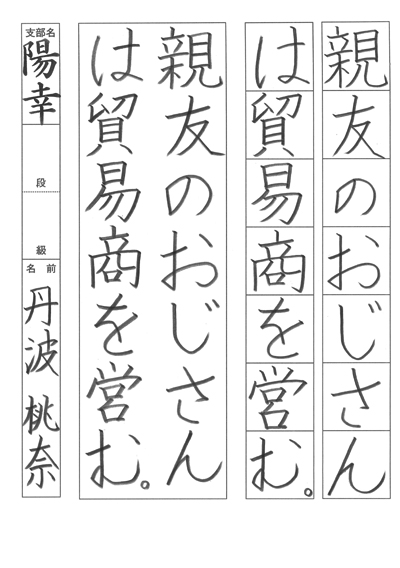 親友のおじさん
は貿易商を営む。
親友のおじさん
は貿易商を営む。
支部名
陽幸
段
級
名前
丹波 桃奈